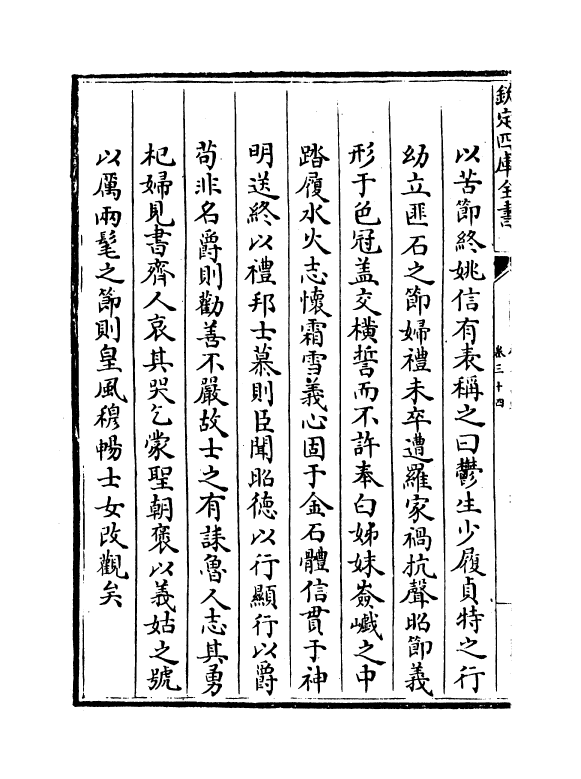 欽定四庫全書
卷三十四
以苦節終姚信有表稱之曰鬱生少履貞特之行
幼立匪石之節婦禮未卒遭羅家禍抗聲昭節義
形于色冠盖交橫誓而不許奉白姊妹嶮巇之中
踏履水火志懷霜雪義心固于金石體信貫于神
明送終以禮邦士慕則臣聞昭德以行顯行以爵
苟非名爵則勸善不嚴故士之有誄魯人志其勇
杞婦見書齊人哀其哭乞蒙聖朝褒以義姑之號
以厲兩髦之節則皇風穆暢士女改觀矣